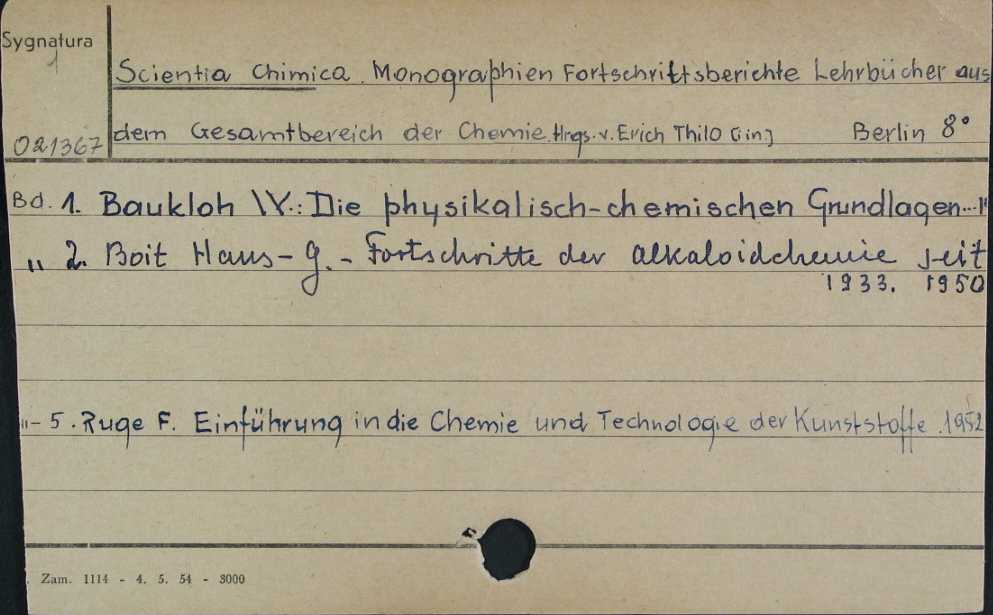 Sygnatura
1
Scientia Chimica. Monographien Fortschrittsberichte Lehrbücher aus
021367 dem Gesamtbereich der Chemie. Hrgs. v. Erich Thilo [in] Berlin 8°
Bd. 1. Baukloh W.: Die physikalisch-chemischen Grundlagen...
„ 2. Boit Hans-G. - Fortschritte der Alkaloidchemie seit
1933. 1950
„- 5. Ruge F. Einführung in die Chemie und Technologie der Kunststoffe. 1952
Zam. 1114 - 4. 5. 54 - 3000